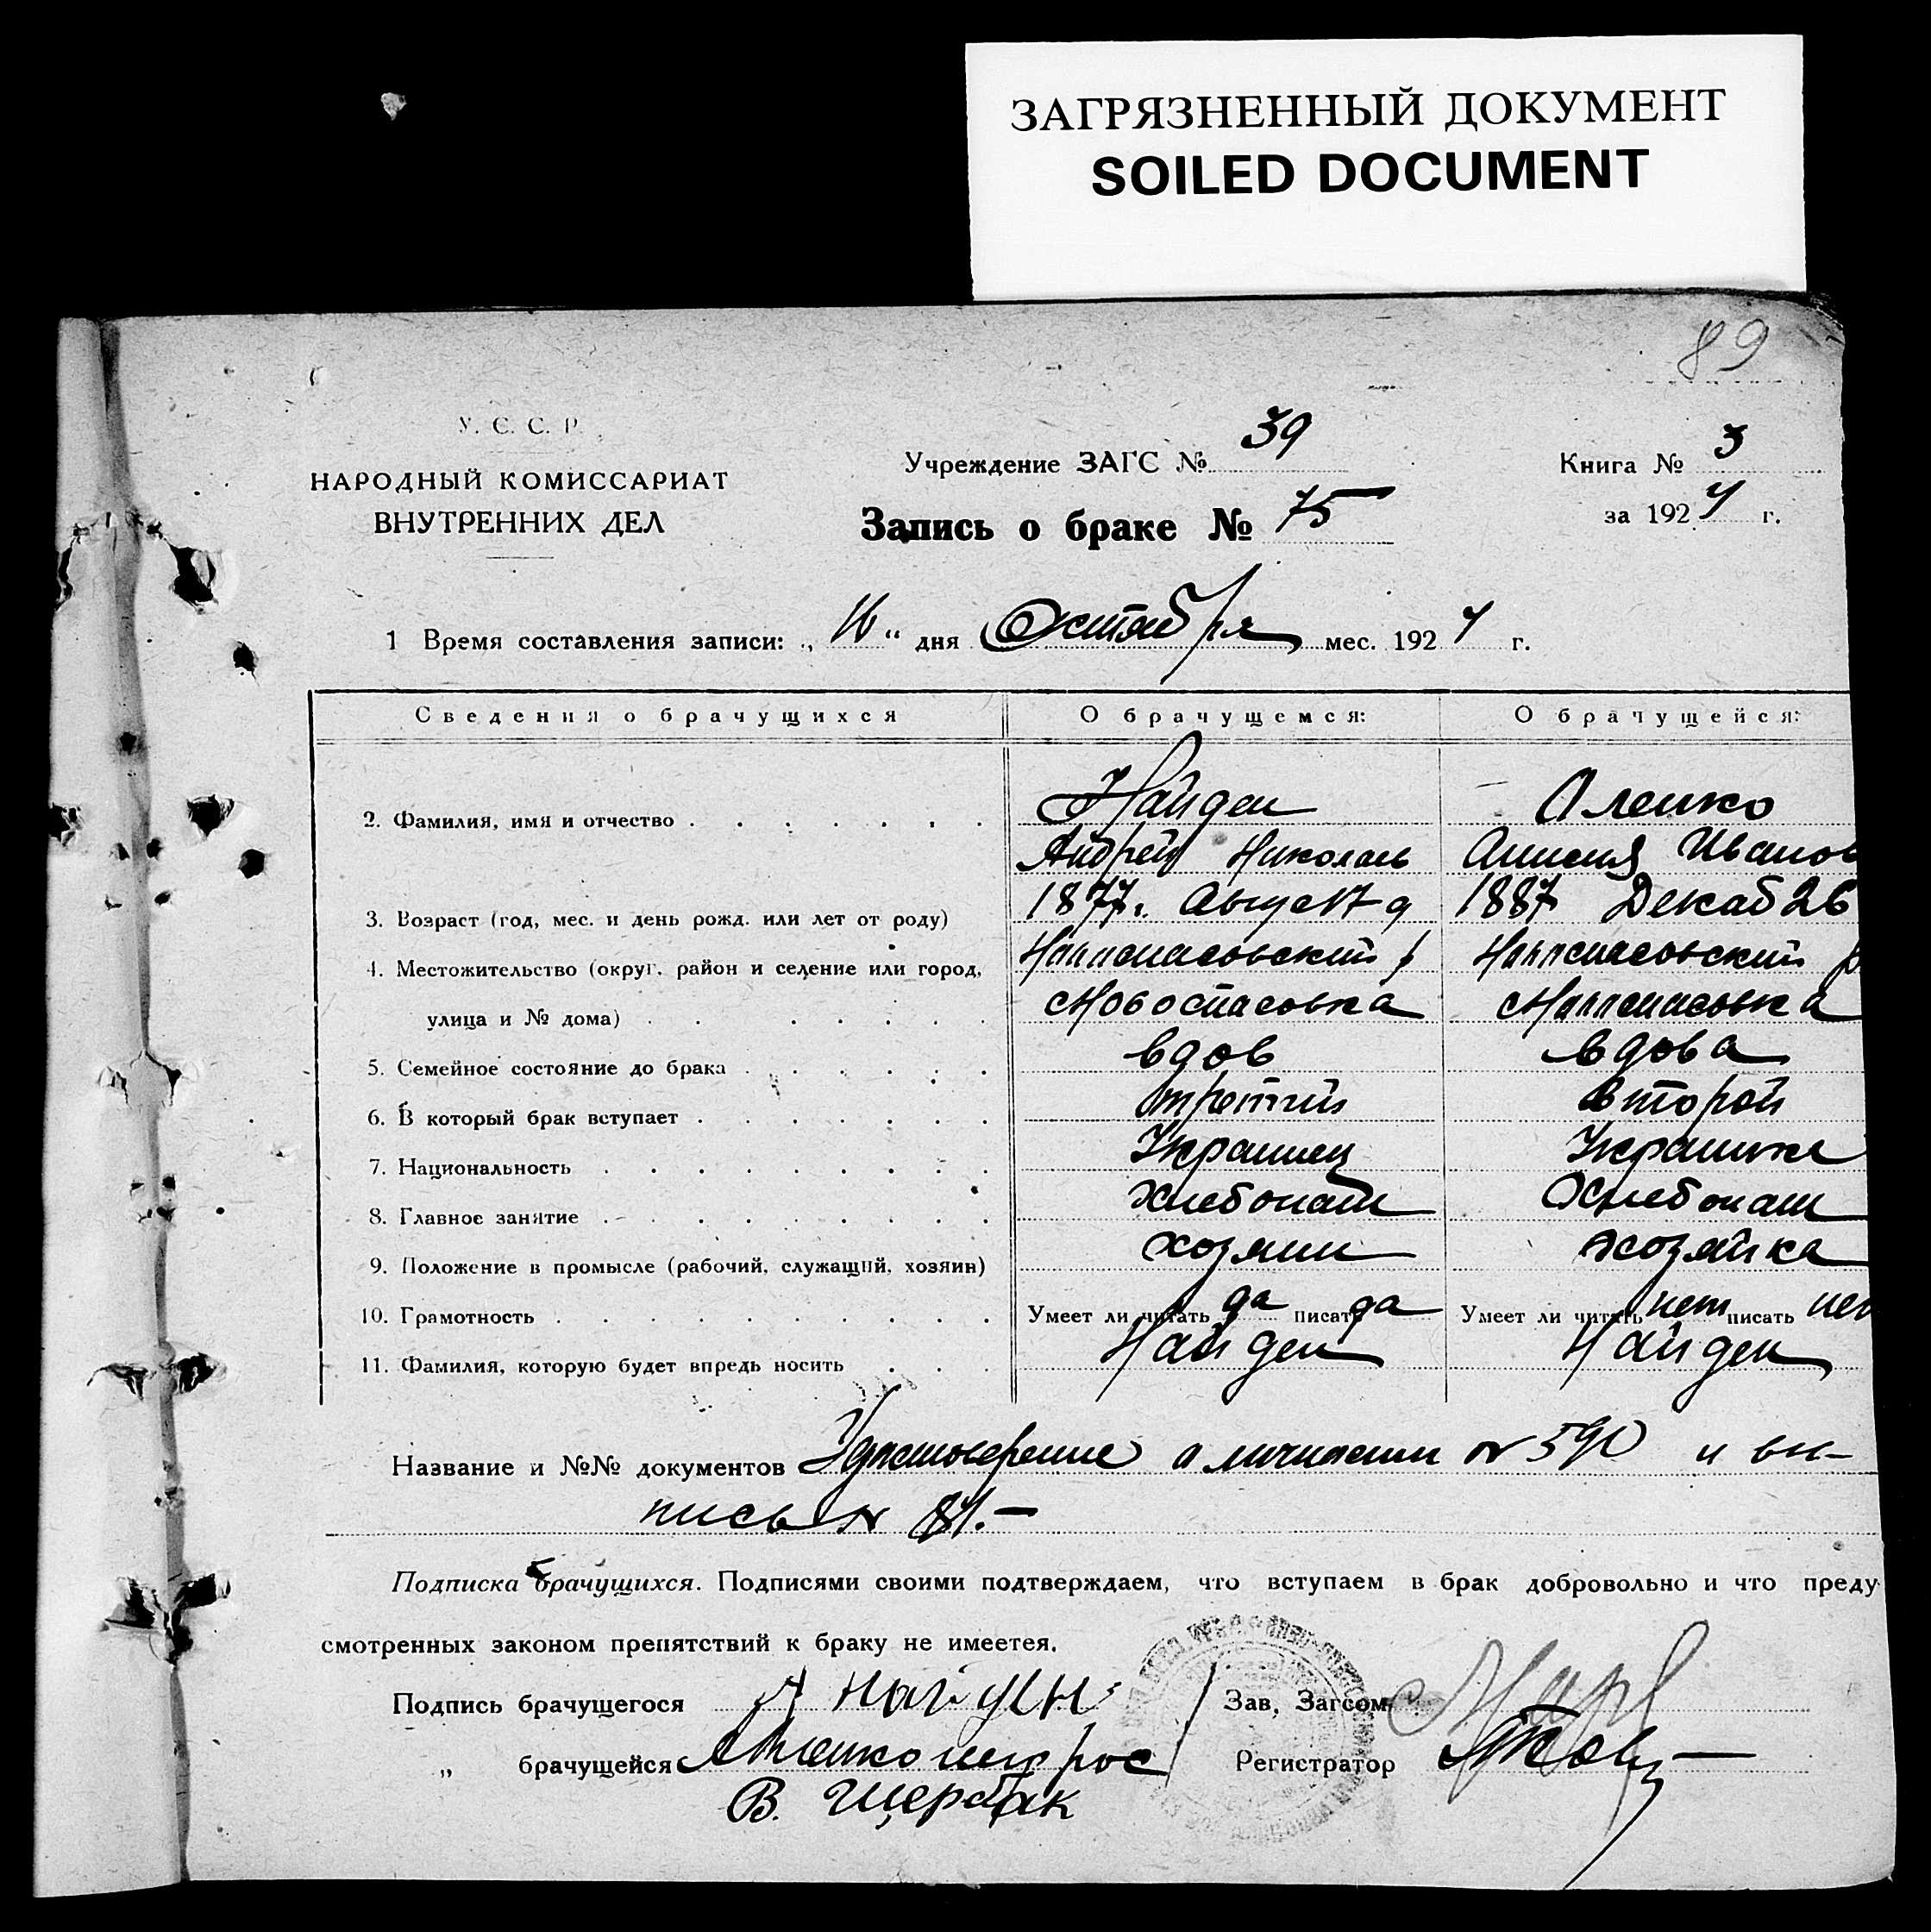 ЗАГРЯЗНЕННЫЙ ДОКУМЕНТ
SOILED DOCUMENT
89
У. С. С. Р.
НАРОДНЫЙ КОМИССАРИАТ
ВНУТРЕННИХ ДЕЛ
Учреждение ЗАГС № 39
Книга № 3
Запись о браке № 75
за 192 г.
1 Время составления записи: „ “ дня Октября мес. 192 г.
Сведения о брачущихся О брачущемся: О брачущейся:
2. Фамилия, имя и отчество Найден
Андрей Николаев Иванов
3. Возраст (год, мес. и день рожд. или лет от роду) 1877. Август 9 1887 Декаб 26
4. Местожительство (округ, район и селение или город, р р
улица и № дома) Новоспасовка
5. Семейное состояние до брака вдов вдова
6. В который брак вступает третий второй
7. Национальность Украинец Украинка
8. Главное занятие хлебопаш Хлебопаш
9. Положение в промысле (рабочий, служащий, хозяин) хозяин хозяйка
10. Грамотность Умеет ли читать да писать да Умеет ли читать нет писать нет
11. Фамилия, которую будет впредь носить Найден Найден
Название и №№ документов Удостоверение о личности № 590 и вы-
пись №
Подписка брачущихся. Подписями своими подтверждаем, что вступаем в брак добровольно и что преду
смотренных законом препятствий к браку не имеется.
Подпись брачущегося А Найден Зав, Загсом
„ брачущейся Регистратор
В. Щербак